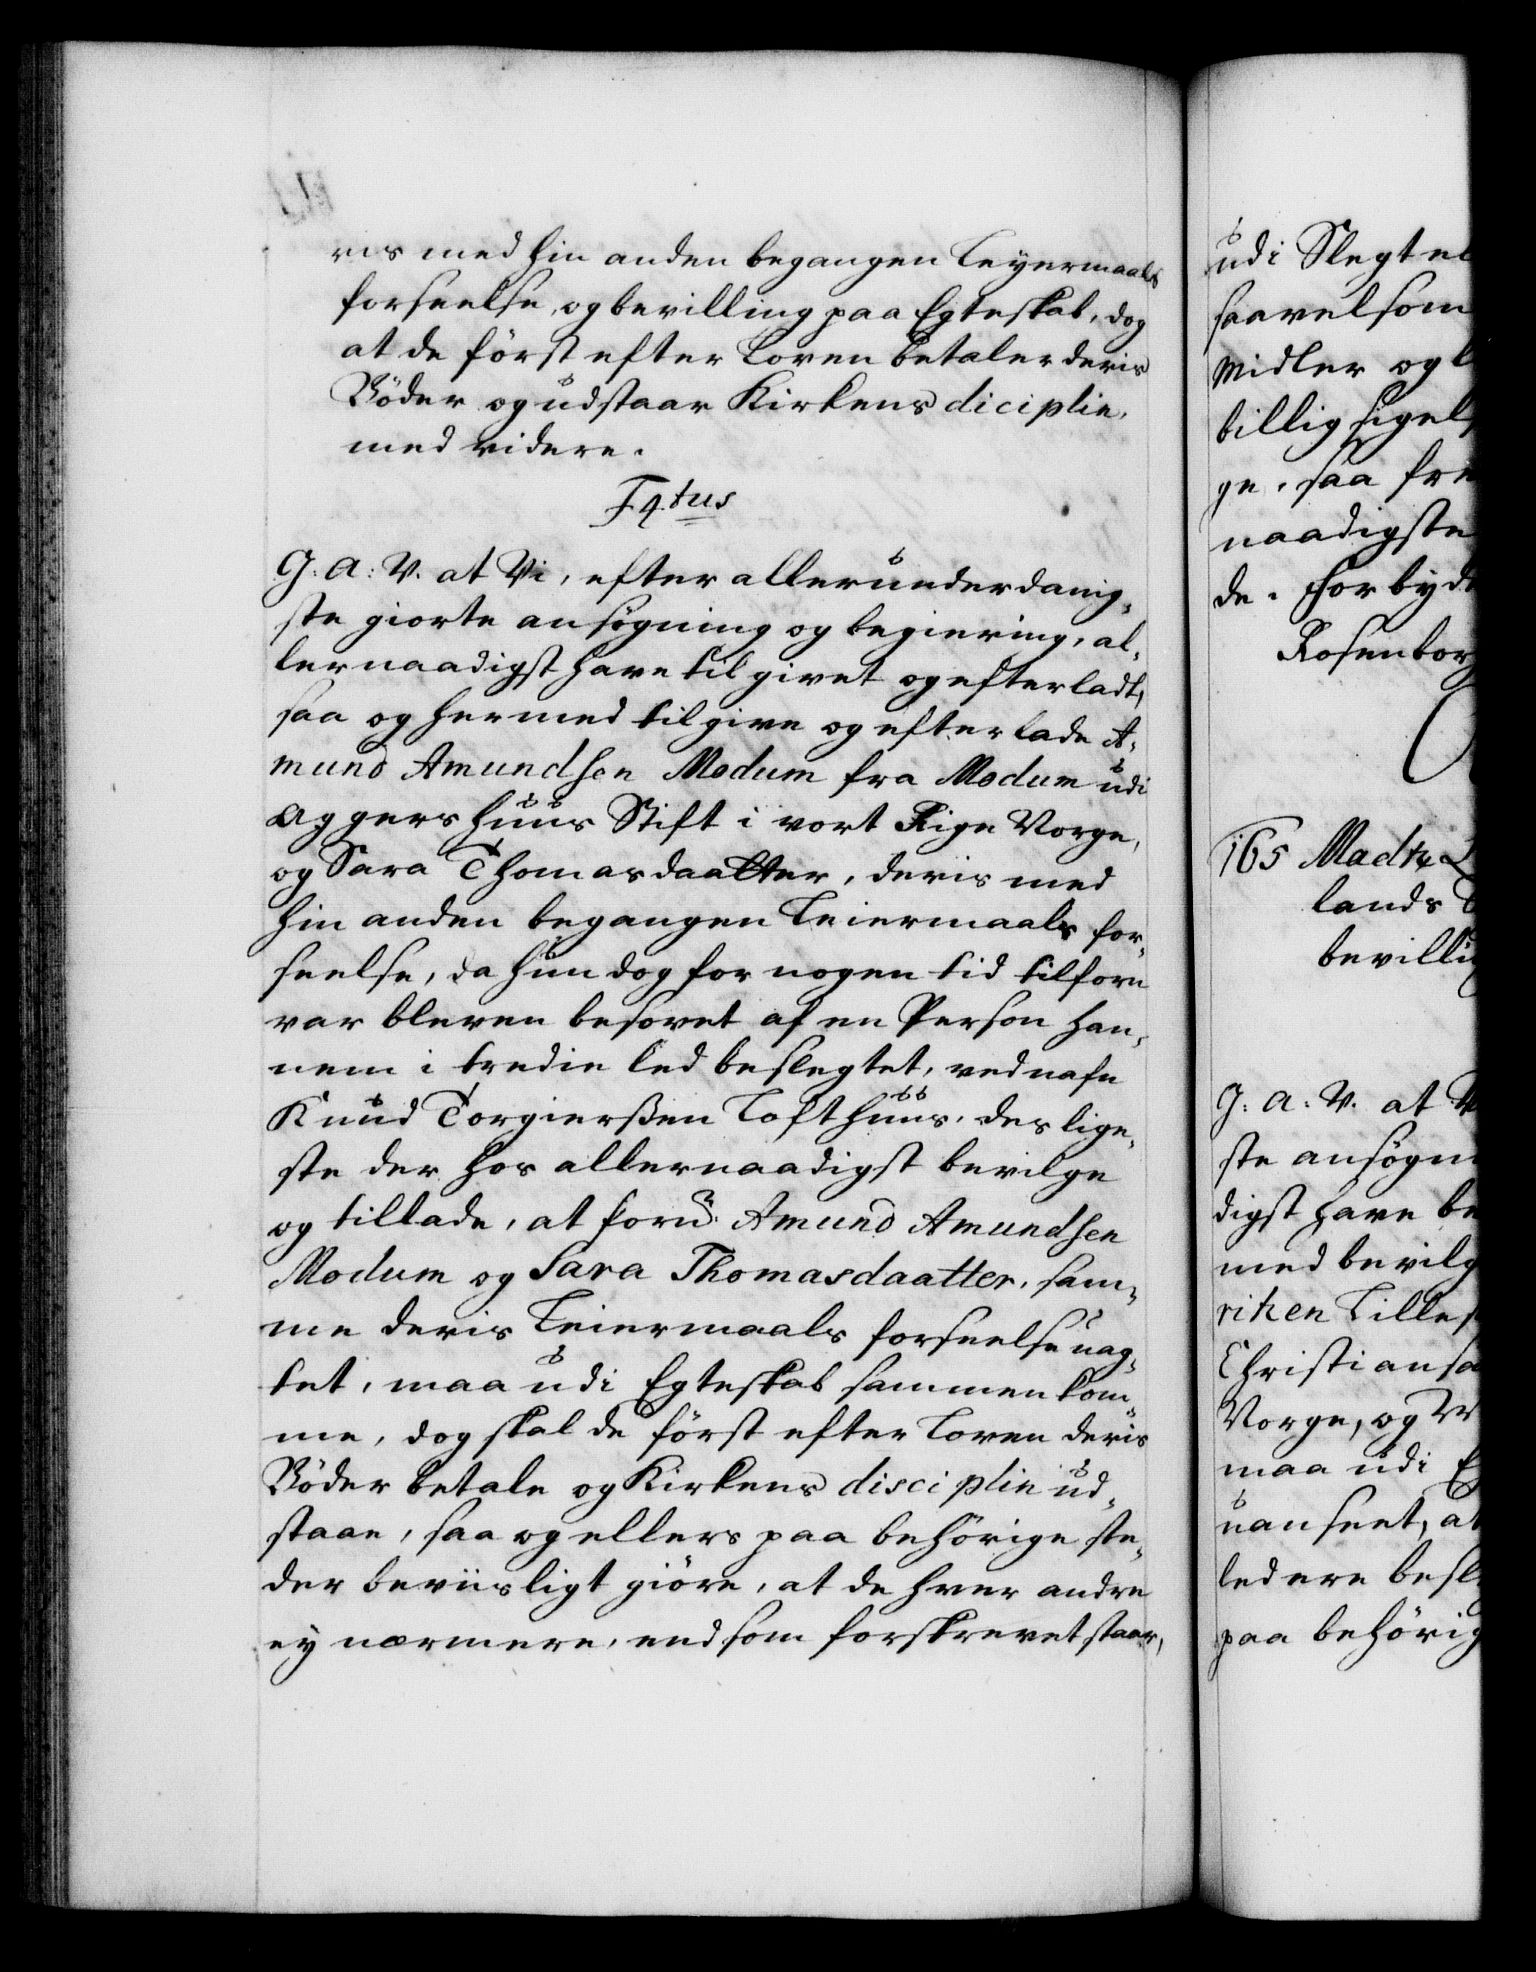 ris med hin anden begangen Leyermaals
forseelse, og bevilling paa Egteskab, dog
at de först efter Loven betaler deris
Böder og udstaar Kirkens diciplin,
med videre.
F4.tus
G. A: V. at Vi, efter allerunderdanig-
ste giorte ansögning og begiering, al-
lernaadigst have tilgivet og efterladt,
saa og hermed tilgive og efterlade A-
mund Amundsen Modum fra Modum udi
Aggershuus Stift i vort Rige Norge,
og Sara Thomasdaatter, deris med
hin anden begangen Leiermaals for-
seelse, da hun dog for nogen tid tilforn
var bleven besovet af en Person han-
nem i tredie led beslegtet, ved nafn
Knud Torgierssen Lofthuus, des lige-
ste der hos allernaadigst bevilge
og tillade, at forn: Amund Amundsen
Modum og Sara Thomasdaatter, sam-
me deris Leiermaals forseelse uag-
tet, maa udi Egteskab sammen kom-
me, dog skal de först efter Loven deris
Böder betale og Kirkens disciplin ud-
staae, saa og ellers paa behörige ste-
der beviisligt giöre, at de hver andre
ey nærmere, end som forskrevet staar,
udi Slegt el
saavelsom
Midler og
billig
ge, saa
naadigste
de. Forbyd
Rosenborg
165 Madts
lands
bevilli
G: A: V. at V
ste ansögn
digst have be
med bevilg
richen Lilles
Christiansa
Norge, og
maa udi E
uanseet, at
led ere besl
paa behörig